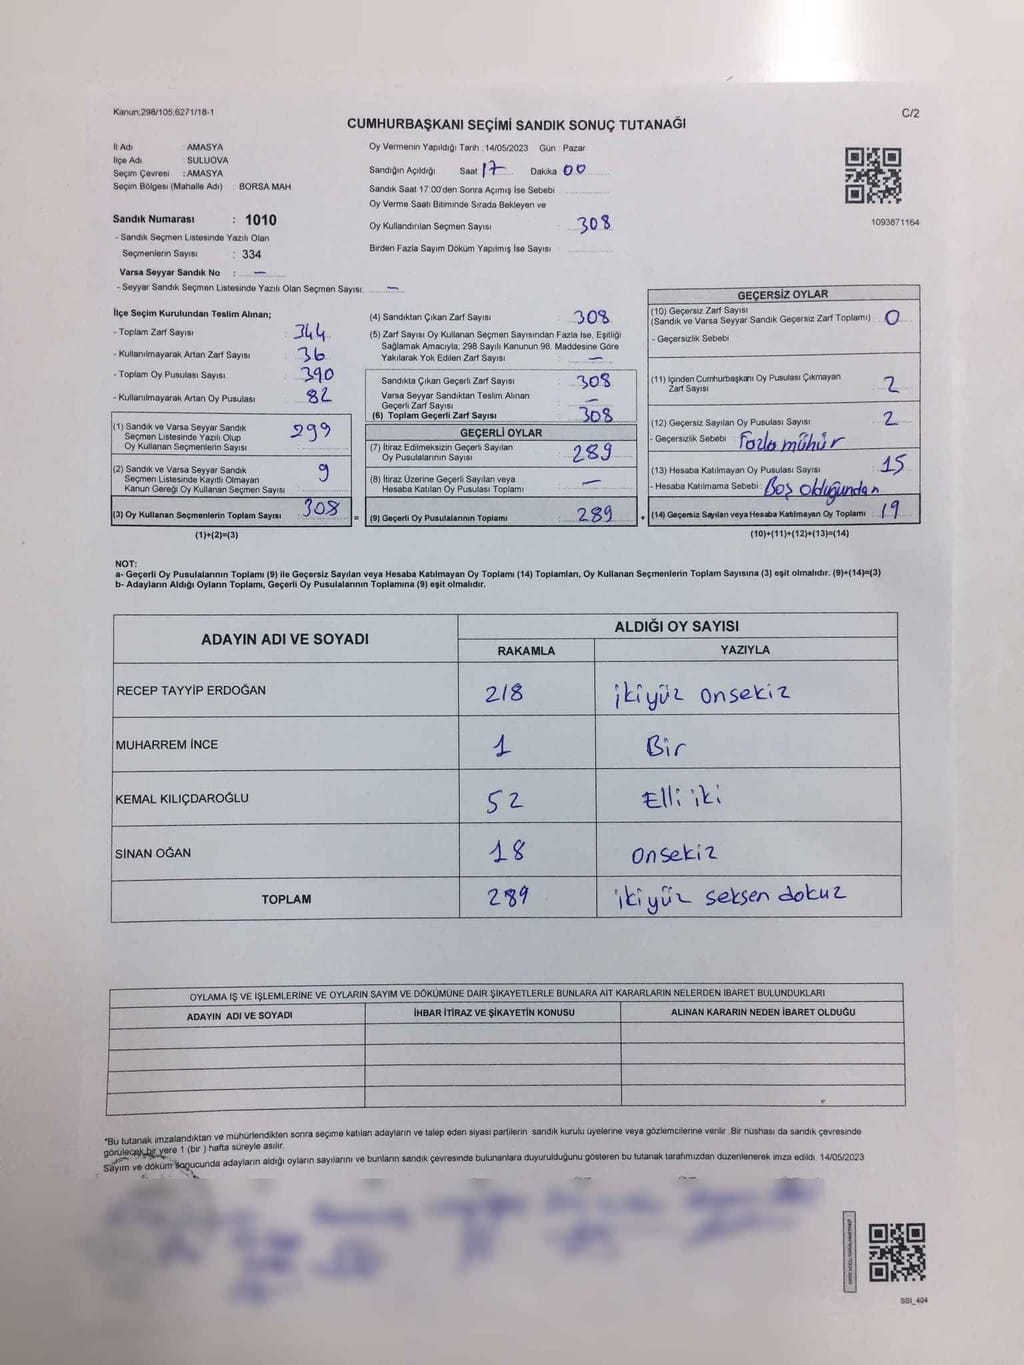 Kanun;298/105;6271/18-1
C/2
CUMHURBAŞKANI SEÇİMİ SANDIK SONUÇ TUTANAĞI
İl Adı : AMASYA
İlçe Adı : SULUOVA
Seçim Çevresi : AMASYA
Seçim Bölgesi (Mahalle Adı) : BORSA MAH.
Sandık Numarası : 1010
- Sandık Seçmen Listesinde Yazılı Olan
Seçmenlerin Sayısı : 334
Varsa Seyyar Sandık No : —
- Seyyar Sandık Seçmen Listesinde Yazılı Olan Seçmen Sayısı: —
Oy Vermenin Yapıldığı Tarih : 14/05/2023 Gün : Pazar
Sandığın Açıldığı Saat 17 Dakika 00
Sandık Saat 17:00'den Sonra Açımış İse Sebebi
Oy Verme Saati Bitiminde Sırada Bekleyen ve
Oy Kullandırılan Seçmen Sayısı 308
Birden Fazla Sayım Döküm Yapılmış İse Sayısı
1093871164
İlçe Seçim Kurulundan Teslim Alınan;
- Toplam Zarf Sayısı : 344
- Kullanılmayarak Artan Zarf Sayısı : 36
- Toplam Oy Pusulası Sayısı : 390
- Kullanılmayarak Artan Oy Pusulası : 82
(1) Sandık ve Varsa Seyyar Sandık
Seçmen Listesinde Yazılı Olup
Oy Kullanan Seçmenlerin Sayısı 299
(2) Sandık ve Varsa Seyyar Sandık
Seçmen Listesinde Kayıtlı Olmayan
Kanun Gereği Oy Kullanan Seçmen Sayısı 9
(3) Oy Kullanan Seçmenlerin Toplam Sayısı 308
(1)+(2)=(3)
(4) Sandıktan Çıkan Zarf Sayısı 308
(5) Zarf Sayısı Oy Kullanan Seçmen Sayısından Fazla İse, Eşitliği
Sağlamak Amacıyla; 298 Sayılı Kanunun 98. Maddesine Göre
Yakılarak Yok Edilen Zarf Sayısı —
Sandıkta Çıkan Geçerli Zarf Sayısı : 308
Varsa Seyyar Sandıktan Teslim Alınan
Geçerli Zarf Sayısı : —
(6) Toplam Geçerli Zarf Sayısı : 308
GEÇERLİ OYLAR
(7) İtiraz Edilmeksizin Geçerli Sayılan
Oy Pusulalarının Sayısı : 289
(8) İtiraz Üzerine Geçerli Sayılan veya
Hesaba Katılan Oy Pusulası Toplamı : —
= (9) Geçerli Oy Pusulalarının Toplamı : 289 +
GEÇERSİZ OYLAR
(10) Geçersiz Zarf Sayısı
(Sandık ve Varsa Seyyar Sandık Geçersiz Zarf Toplamı) 0
- Geçersizlik Sebebi
(11) İçinden Cumhurbaşkanı Oy Pusulası Çıkmayan
Zarf Sayısı 2
(12) Geçersiz Sayılan Oy Pusulası Sayısı : 2
- Geçersizlik Sebebi : Fazla mühür
(13) Hesaba Katılmayan Oy Pusulası Sayısı : 15
- Hesaba Katılmama Sebebi : Boş olduğundan
(14) Geçersiz Sayılan veya Hesaba Katılmayan Oy Toplamı : 19
(10)+(11)+(12)+(13)=(14)
NOT:
a- Geçerli Oy Pusulalarının Toplamı (9) ile Geçersiz Sayılan veya Hesaba Katılmayan Oy Toplamı (14) Toplamları, Oy Kullanan Seçmenlerin Toplam Sayısına (3) eşit olmalıdır. (9)+(14)=(3)
b- Adayların Aldığı Oyların Toplamı, Geçerli Oy Pusulalarının Toplamına (9) eşit olmalıdır.
ADAYIN ADI VE SOYADI ALDIĞI OY SAYISI
RAKAMLA YAZIYLA
RECEP TAYYİP ERDOĞAN 218 ikiyüz onsekiz
MUHARREM İNCE 1 Bir
KEMAL KILIÇDAROĞLU 52 Elli iki
SİNAN OĞAN 18 onsekiz
TOPLAM 289 ikiyüz seksen dokuz
OYLAMA İŞ VE İŞLEMLERİNE VE OYLARIN SAYIM VE DÖKÜMÜNE DAİR ŞİKAYETLERLE BUNLARA AİT KARARLARIN NELERDEN İBARET BULUNDUKLARI
ADAYIN ADI VE SOYADI İHBAR İTİRAZ VE ŞİKAYETİN KONUSU ALINAN KARARIN NEDEN İBARET OLDUĞU
*Bu tutanak imzalandıktan ve mühürlendikten sonra seçime katılan adayların ve talep eden siyasi partilerin sandık kurulu üyelerine veya gözlemcilerine verilir. Bir nüshası da sandık çevresinde
görülecek bir yere 1 (bir ) hafta süreyle asılır.
Sayım ve döküm sonucunda adayların aldığı oyların sayılarını ve bunların sandık çevresinde bulunanlara duyurulduğunu gösteren bu tutanak tarafımızdan düzenlenerek imza edildi. 14/05/2023
SSI_404